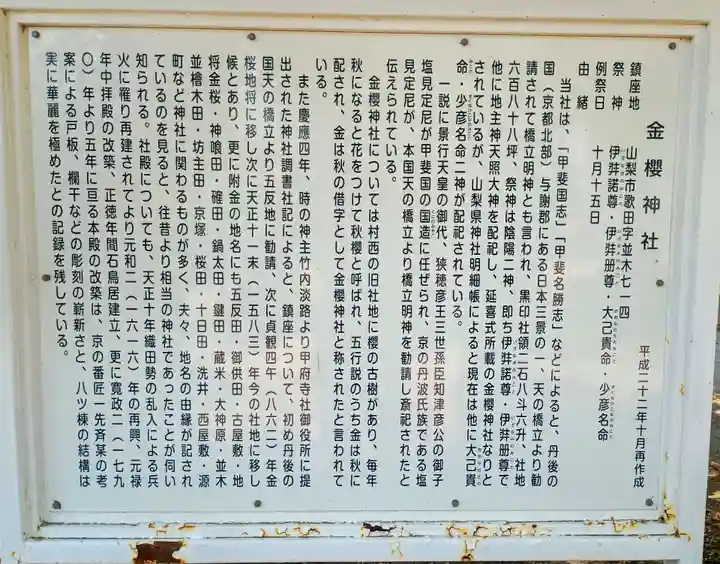 金櫻神社
平成二十二年十月再作成
鎮座地 山梨市歌田字並木七一四
祭神 伊弉諾尊・伊弉册尊・大己貴命・少彦名命
例祭日 十月十五日
由緒
当社は、「甲斐国志」「甲斐名勝志」などによると、丹後の
国（京都北部）与謝郡にある日本三景の一、天の橋立より勧
請されて橋立明神とも言われ、黒印社領二石八斗六升、社地
六百八十八坪、祭神は陰陽二神、即ち伊弉諾尊・伊弉册尊で
他に地主神天照大神を配祀し、延喜式所載の金櫻神社なりと
されているが、山梨県神社明細帳によると現在は他に大己貴
命・少彦名命二神が配祀されている。
一説に景行天皇の御代、狭穂彦王三世孫臣知津彦公の御子
塩見足尼が甲斐国の国造に任ぜられ、京の丹波氏族である塩
見足尼が、本国天の橋立より橋立明神を勧請し斎祀されたと
伝えられている。
金櫻神社については村西の旧社地に櫻の古樹があり、毎年
秋になると花をつけて秋櫻と呼ばれ、五行説のうち金は秋に
配され、金は秋の借字として金櫻神社と称されたと言われて
いる。
また慶應四年、時の神主竹内淡路より甲府寺社御役所に提
出された神社調書社記によると、鎮座について、初め丹後の
国天の橋立より五反地に勧請、次に貞観四年（八六二）年金
桜地将に移し次に天正十一末（一五八三）年今の社地に移し
候とあり、更に附金の地名にも五反田・御供田・古屋敷・地
将金桜・神喰田・確田・鍋太田・鍵田・蔵米・大神原・並木
並檜木田・坊主田・京塚・桜田・十日田・洗井・西屋敷・源
町など神社に関わるものが多く、夫々、地名の由縁が記され
ているのを見ると、往昔より相当の神社であったことが伺い
知られる。社殿についても、天正十年織田勢の乱入による兵
火に罹り再建されてより元和二（一六一六）年の再興、元禄
年中拝殿の改築、正徳年間石鳥居建立、更に寛政二（一七九
〇）年より五年に亘る本殿の改築は、京の番匠一先斉某の考
案による戸板、欄干などの彫刻の嶄新さと、八ツ棟の結構は
実に華麗を極めたとの記録を残している。